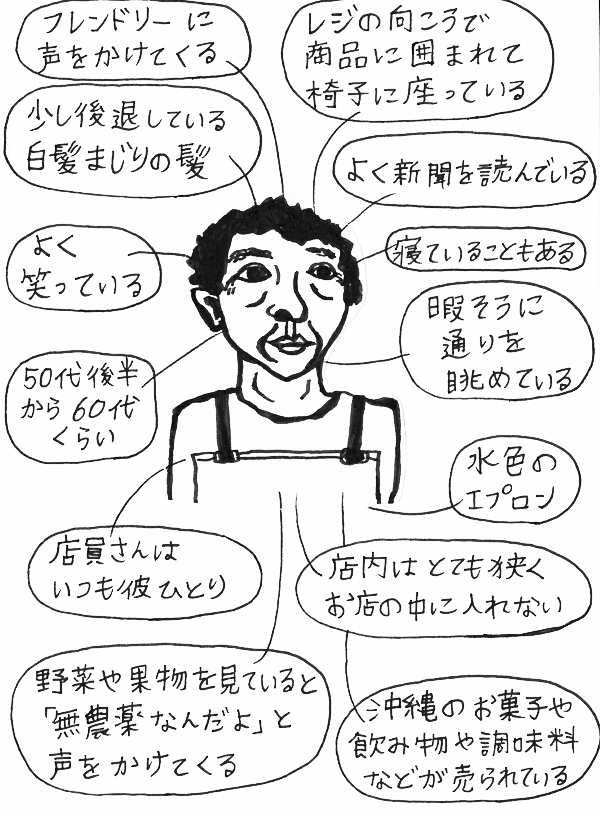 フレンドリーに
声をかけてくる
レジの向こうで
商品に囲まれて
椅子に座っている
少し後退している
白髪まじりの髪
よく新聞を読んでいる
よく
笑っている
寝ていることもある
暇そうに
通りを
眺めている
50代後半
から60代
くらい
水色の
エプロン
店員さんは
いつも彼ひとり
店内はとても狭く
お店の中に入れない
野菜や果物を見ていると
「無農薬なんだよ」と
声をかけてくる
沖縄のお菓子や
飲み物や調味料
などが売られている